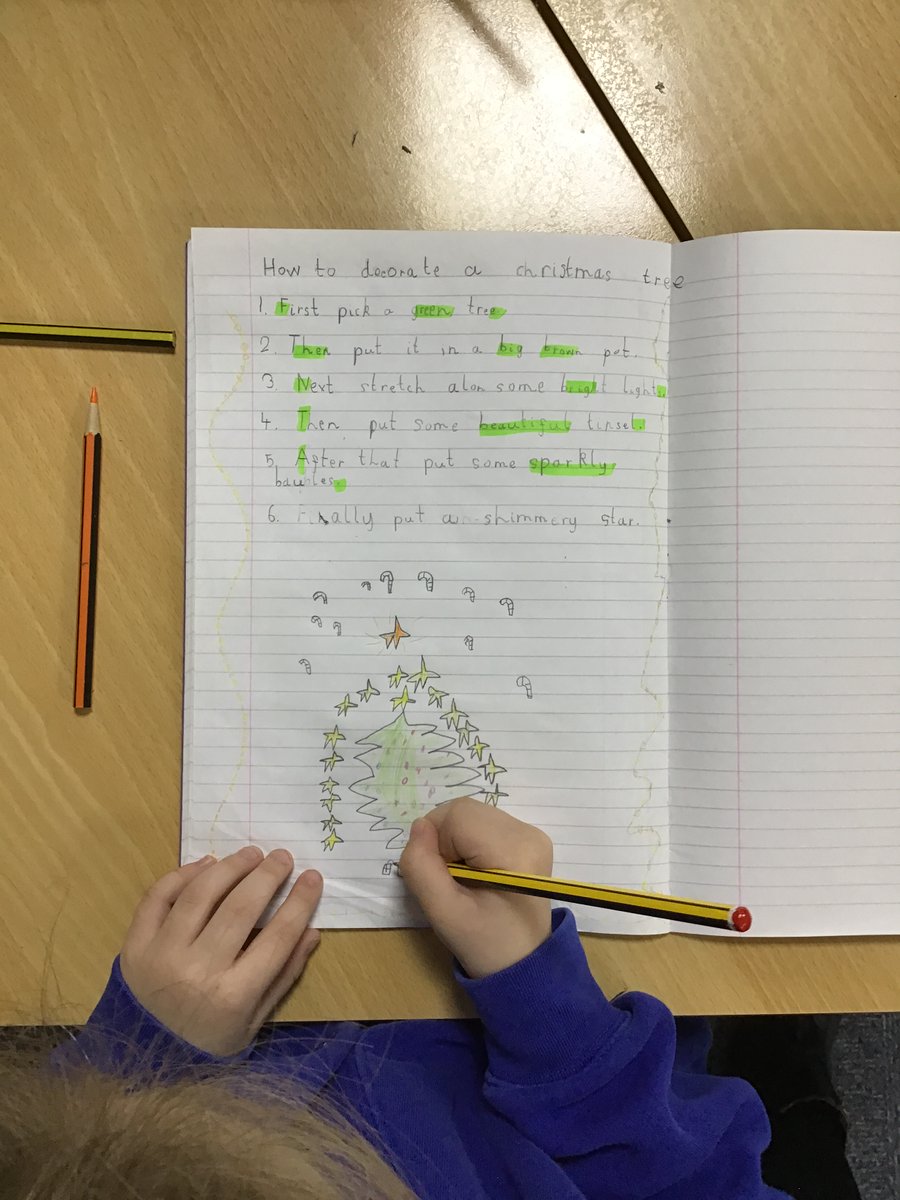 How to decorate a christmas tree
1. First pick a green tree
2. Then put it in a big brown pot.
3. Next stretch alon some bright lights.
4. Then put some beautiful tinsel.
5. After that put some sparkly
baubles.
6. Finally put a shimmery star.